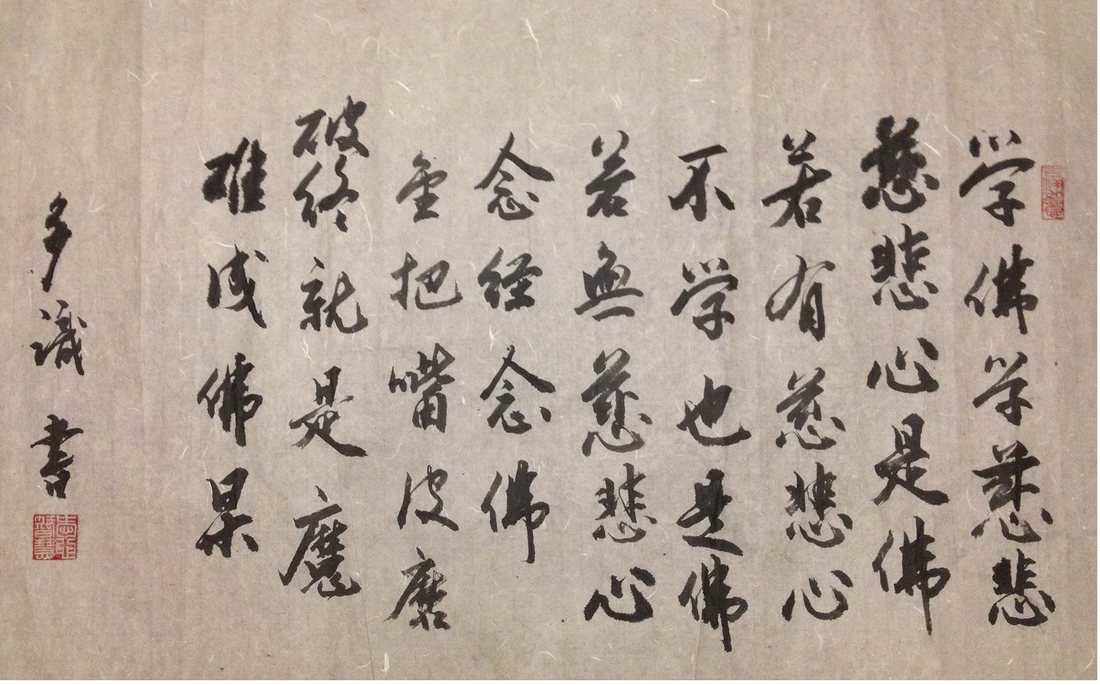 学佛学慈悲
慈悲心是佛
若有慈悲心
不学也是佛
若無慈悲心
念经念佛
把嘴皮磨
破终就是魔
难成佛果
多识书